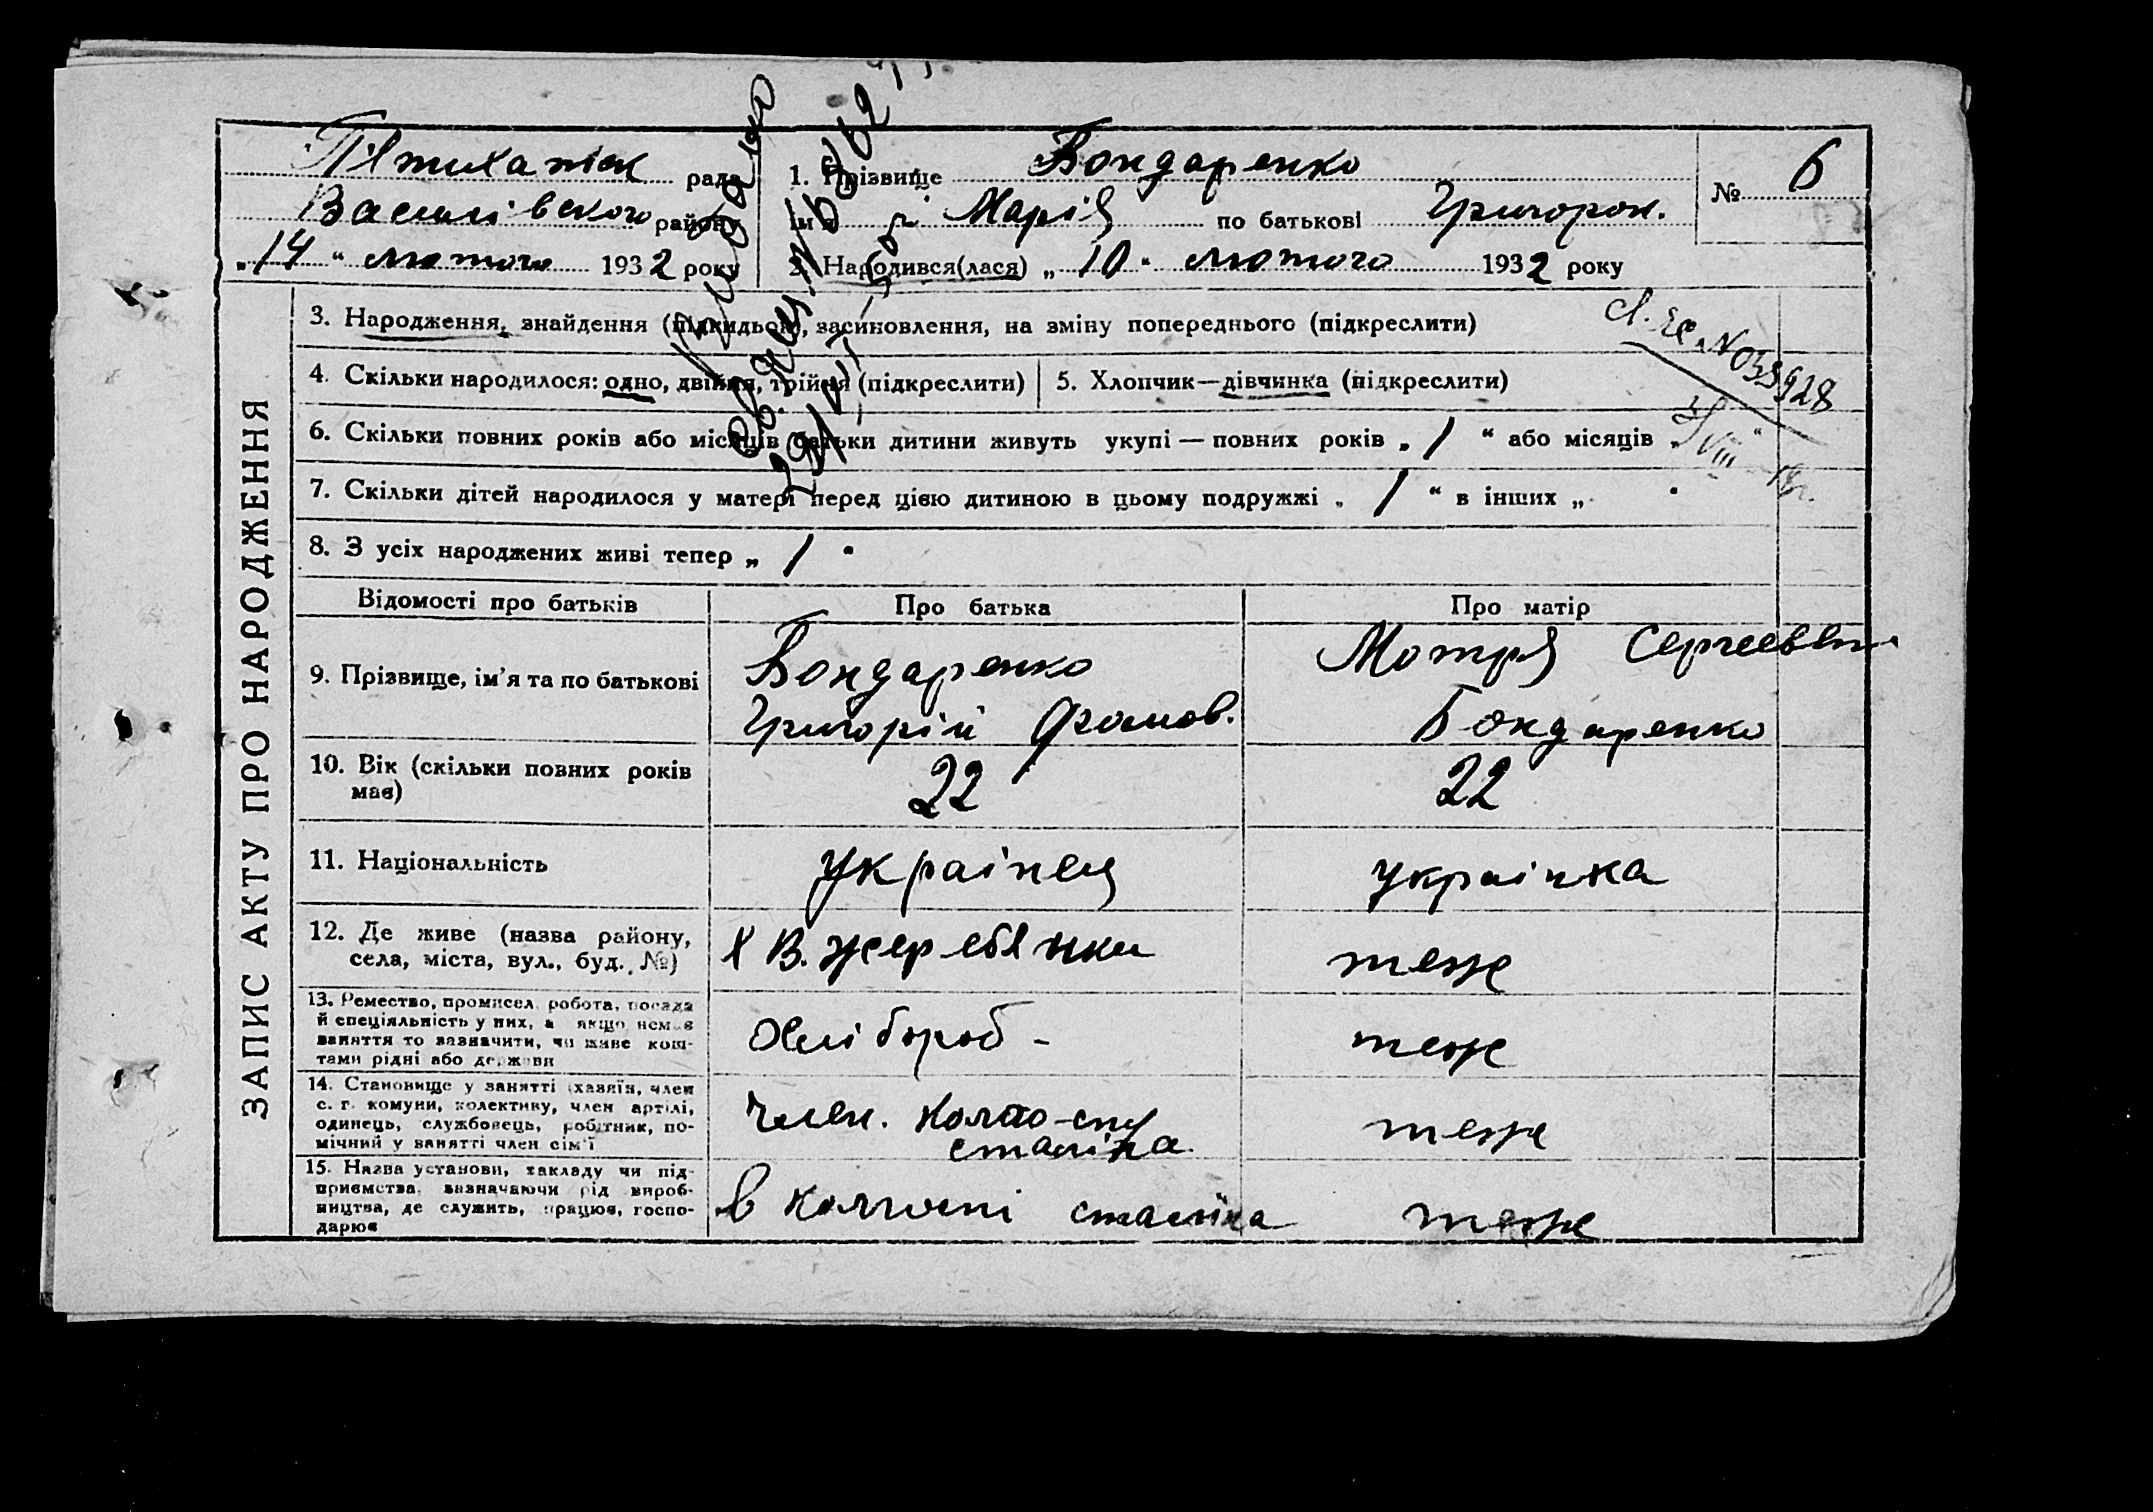 Пятихатск рада
Василівского району
„ 14 “ лютого 1932 року
1. Прізвище Бондаренко
Марія по батькові Григоров.
2. Народився(лася) „ 10 “ лютого 1932 року
№ 6
ЗАПИС АКТУ ПРО НАРОДЖЕННЯ
3. Народження, знайдення (підкидьок), засиновлення, на зміну попереднього (підкреслити)
4. Скільки народилося: одно, двійня, трійня (підкреслити)
5. Хлопчик—дівчинка (підкреслити)
6. Скільки повних років або місяців батьки дитини живуть укупі — повних років „ 1 “ або місяців „ “
7. Скільки дітей народилося у матері перед цією дитиною в цьому подружжі „ 1 “ в інших „ “
8. З усіх народжених живі тепер „ 1 “
№ 039928
Відомості про батьків
Про батька
Про матір
9. Прізвище, ім’я та по батькові
Бондаренко
Григорій Фомов.
Мотря Сергеевна
Бондаренко
10. Вік (скільки повних років
має)
22
22
11. Національність
українец
українка
12. Де живе (назва району,
села, міста, вул., буд. №)
х В. Жеребянки
теж
13. Ремество, промисел, робота, посада
й спеціяльність у них, а якщо немає
заняття то зазначити, чи живе кош-
тами рідні або держави
Хлібороб -
теж
14. Становище у занятті (хазяїн, член
с. г. комуни, колективу, член артілі,
одинець, службовець, робітник, по-
мічний у занятті член сім’ї
член.
сталіна
теж
15. Назва установи, закладу чи під-
приємства, зазначаючи рід вироб-
ництва, де служить, працює, госпо-
дарює
в колгоспі сталіна
теж